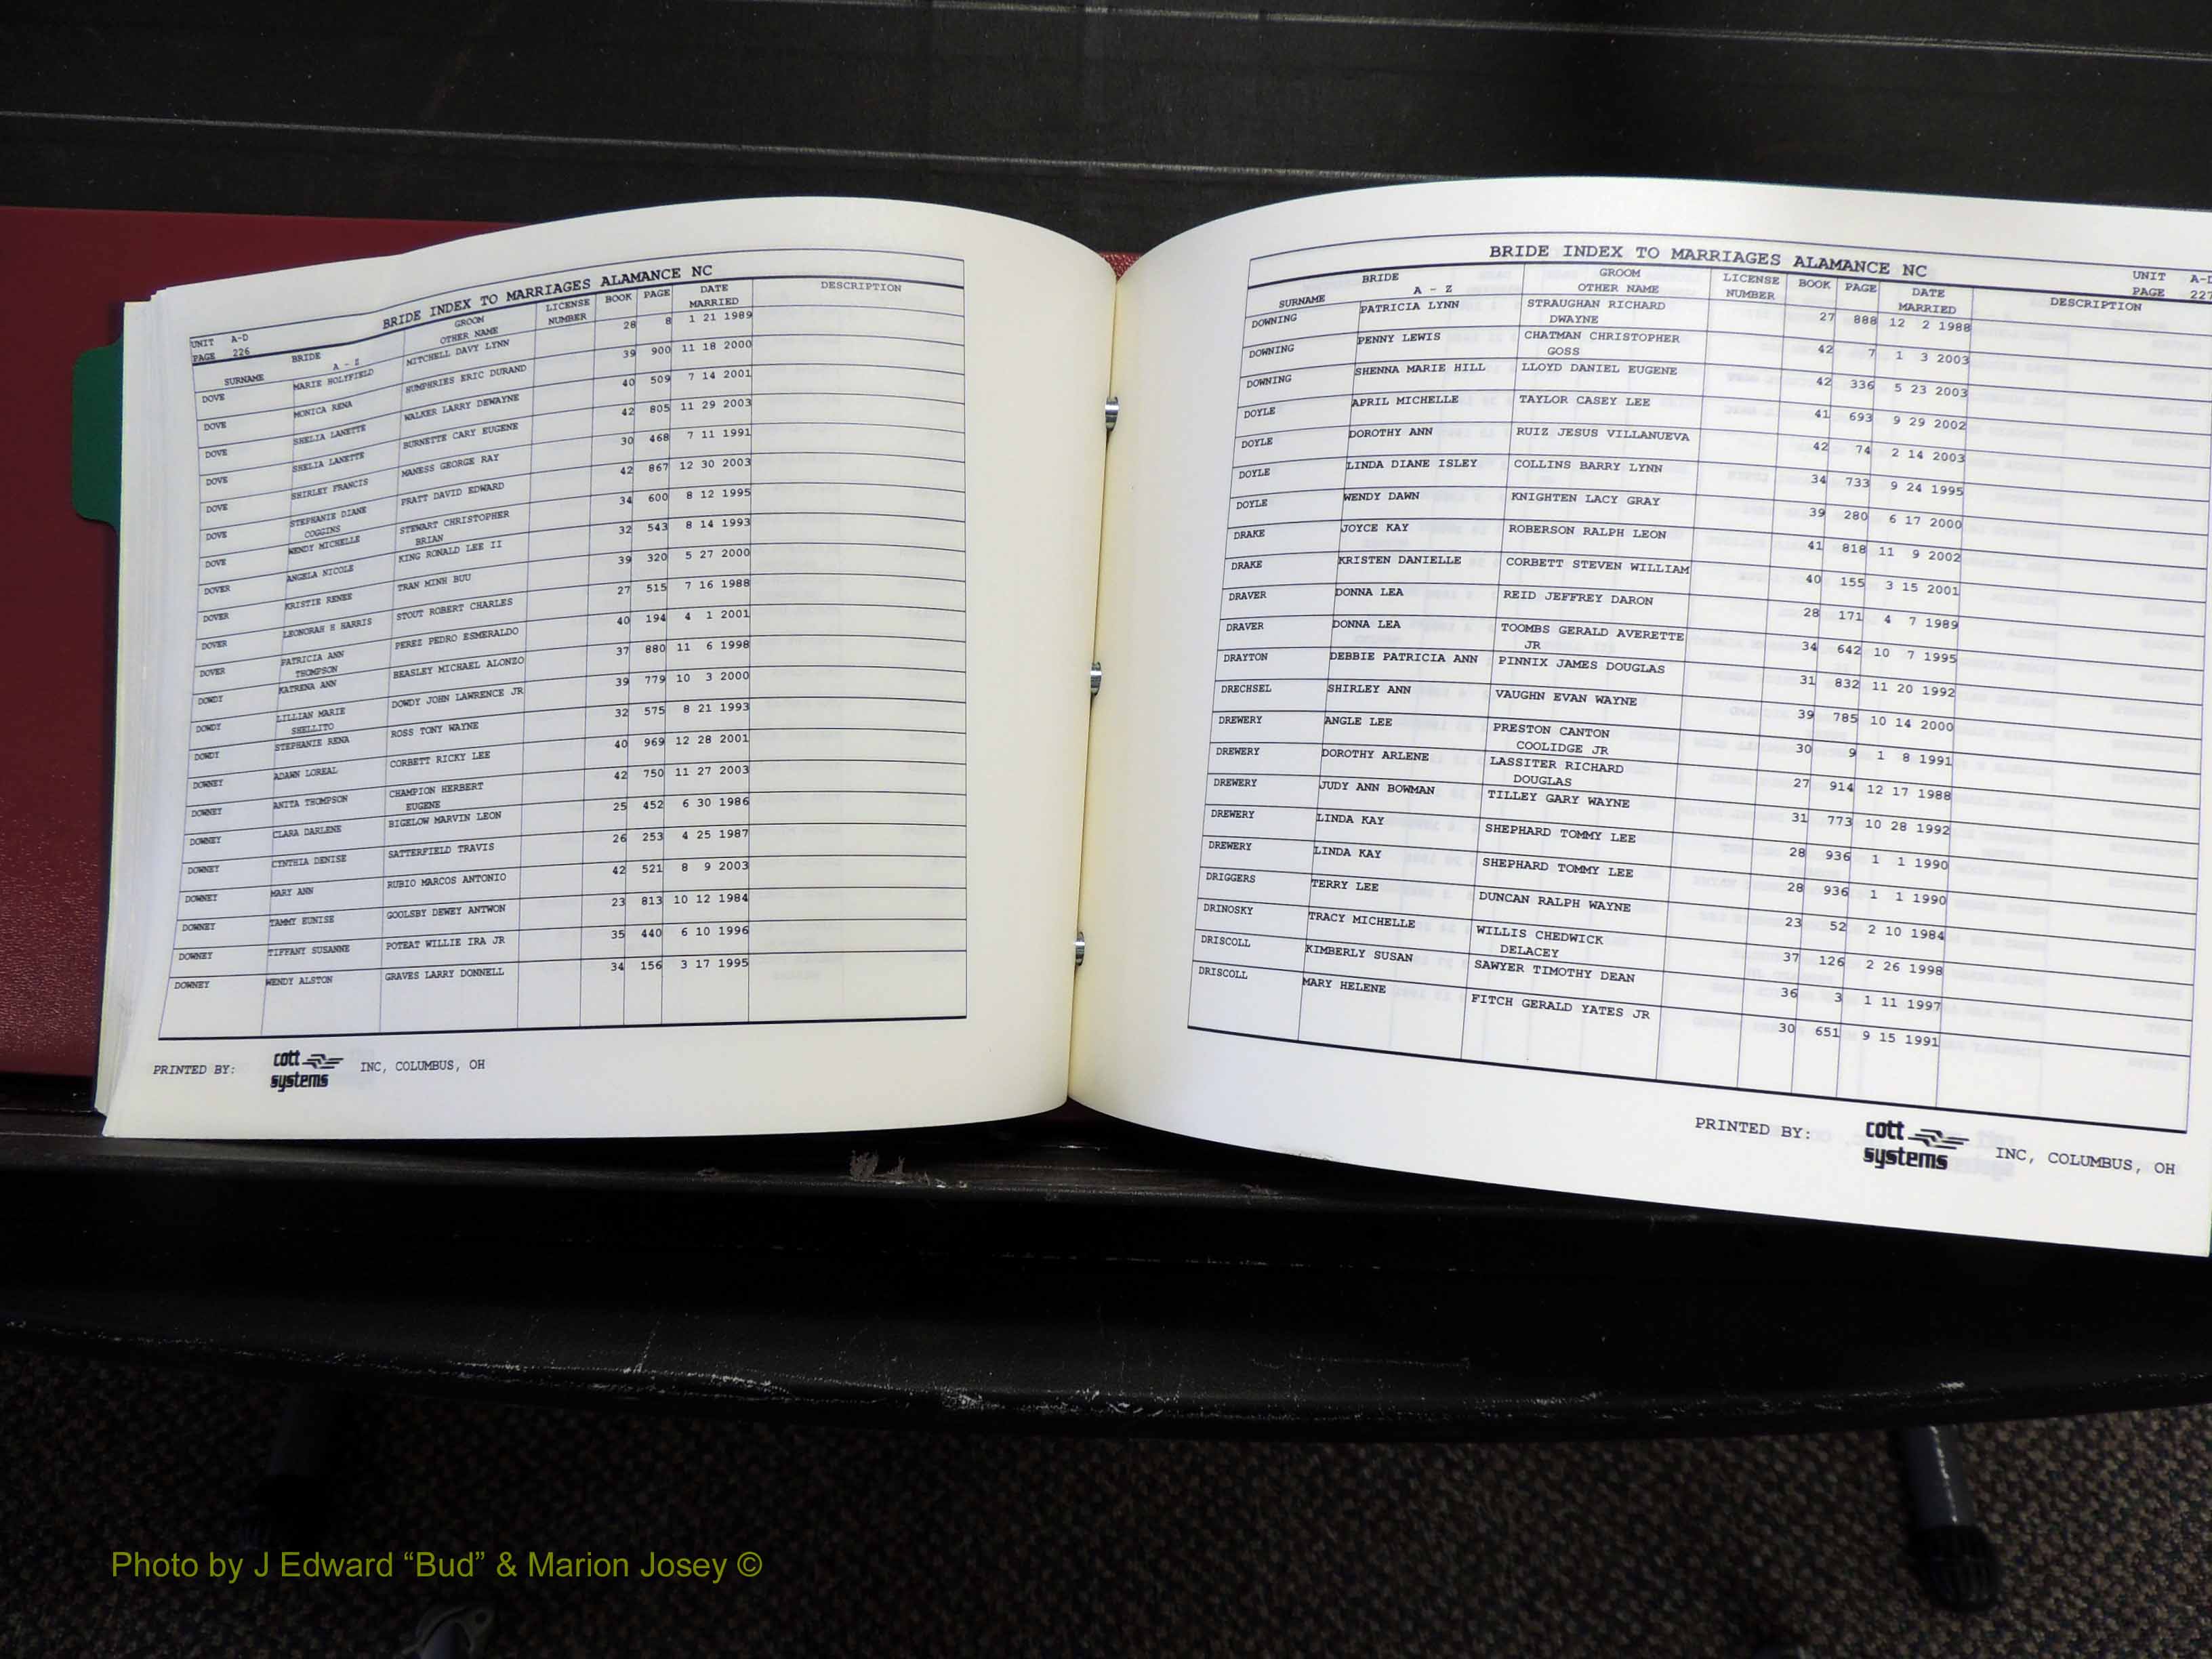 BRIDE INDEX TO MARRIAGES ALAMANCE NC
UNIT A-D
PAGE 226
BRIDE GROOM LICENSE BOOK PAGE DATE DESCRIPTION
SURNAME A - Z OTHER NAME NUMBER MARRIED
DOVE MARIE HOLYFIELD MITCHELL DAVY LYNN 28 8 1 21 1989
DOVE MONICA RENA HUMPHRIES ERIC DURAND 39 900 11 18 2000
DOVE SHELIA LANETTE WALKER LARRY DEWAYNE 40 509 7 14 2001
DOVE SHELIA LANETTE BURNETTE CARY EUGENE 42 805 11 29 2003
DOVE SHIRLEY FRANCIS MANESS GEORGE RAY 30 468 7 11 1991
DOVE STEPHANIE DIANE PRATT DAVID EDWARD 42 867 12 30 2003
COGGINS
DOVE WENDY MICHELLE STEWART CHRISTOPHER 34 600 8 12 1995
BRIAN
DOVER ANGELA NICOLE KING RONALD LEE II 32 543 8 14 1993
DOVER KRISTIE RENEE TRAN MINH BUU 39 320 5 27 2000
DOVER LEONORAH H HARRIS STOUT ROBERT CHARLES 27 515 7 16 1988
DOVER PATRICIA ANN PEREZ PEDRO ESMERALDO 40 194 4 1 2001
THOMPSON
DOWDY KATRENA ANN BEASLEY MICHAEL ALONZO 37 880 11 6 1998
DOWDY LILLIAN MARIE DOWDY JOHN LAWRENCE JR 39 779 10 3 2000
SHELLITO
DOWDY STEPHANIE RENA ROSS TONY WAYNE 32 575 8 21 1993
DOWNEY ADAWN LOREAL CORBETT RICKY LEE 40 969 12 28 2001
DOWNEY ANITA THOMPSON CHAMPION HERBERT 42 750 11 27 2003
EUGENE
DOWNEY CLARA DARLENE BIGELOW MARVIN LEON 25 452 6 30 1986
DOWNEY CYNTHIA DENISE SATTERFIELD TRAVIS 26 253 4 25 1987
DOWNEY MARY ANN RUBIO MARCOS ANTONIO 42 521 8 9 2003
DOWNEY TAMMY EUNISE GOOLSBY DEWEY ANTWON 23 813 10 12 1984
DOWNEY TIFFANY SUSANNE POTEAT WILLIE IRA JR 35 440 6 10 1996
DOWNEY WENDY ALSTON GRAVES LARRY DONNELL 34 156 3 17 1995
PRINTED BY: cott systems INC, COLUMBUS, OH
BRIDE INDEX TO MARRIAGES ALAMANCE NC
UNIT A-D
PAGE 227
BRIDE GROOM LICENSE BOOK PAGE DATE DESCRIPTION
SURNAME A - Z OTHER NAME NUMBER MARRIED
DOWNING PATRICIA LYNN STRAUGHAN RICHARD 27 888 12 2 1988
DWAYNE
DOWNING PENNY LEWIS CHATMAN CHRISTOPHER 42 7 1 3 2003
GOSS
DOWNING SHENNA MARIE HILL LLOYD DANIEL EUGENE 42 336 5 23 2003
DOYLE APRIL MICHELLE TAYLOR CASEY LEE 41 693 9 29 2002
DOYLE DOROTHY ANN RUIZ JESUS VILLANUEVA 42 74 2 14 2003
DOYLE LINDA DIANE ISLEY COLLINS BARRY LYNN 34 733 9 24 1995
DOYLE WENDY DAWN KNIGHTEN LACY GRAY 39 280 6 17 2000
DRAKE JOYCE KAY ROBERSON RALPH LEON 41 818 11 9 2002
DRAKE KRISTEN DANIELLE CORBETT STEVEN WILLIAM 40 155 3 15 2001
DRAVER DONNA LEA REID JEFFREY DARON 28 171 4 7 1989
DRAVER DONNA LEA TOOMBS GERALD AVERETTE 34 642 10 7 1995
JR
DRAYTON DEBBIE PATRICIA ANN PINNIX JAMES DOUGLAS 31 832 11 20 1992
DRECHSEL SHIRLEY ANN VAUGHN EVAN WAYNE 39 785 10 14 2000
DREWERY ANGLE LEE PRESTON CANTON 30 9 1 8 1991
COOLIDGE JR
DREWERY DOROTHY ARLENE LASSITER RICHARD 27 914 12 17 1988
DOUGLAS
DREWERY JUDY ANN BOWMAN TILLEY GARY WAYNE 31 773 10 28 1992
DREWERY LINDA KAY SHEPHARD TOMMY LEE 28 936 1 1 1990
DREWERY LINDA KAY SHEPHARD TOMMY LEE 28 936 1 1 1990
DRIGGERS TERRY LEE DUNCAN RALPH WAYNE 23 52 2 10 1984
DRINOSKY TRACY MICHELLE WILLIS CHEDWICK 37 126 2 26 1998
DELACEY
DRISCOLL KIMBERLY SUSAN SAWYER TIMOTHY DEAN 36 3 1 11 1997
DRISCOLL MARY HELENE FITCH GERALD YATES JR 30 651 9 15 1991
PRINTED BY: cott systems INC, COLUMBUS, OH
Photo by J Edward “Bud” & Marion Josey ©